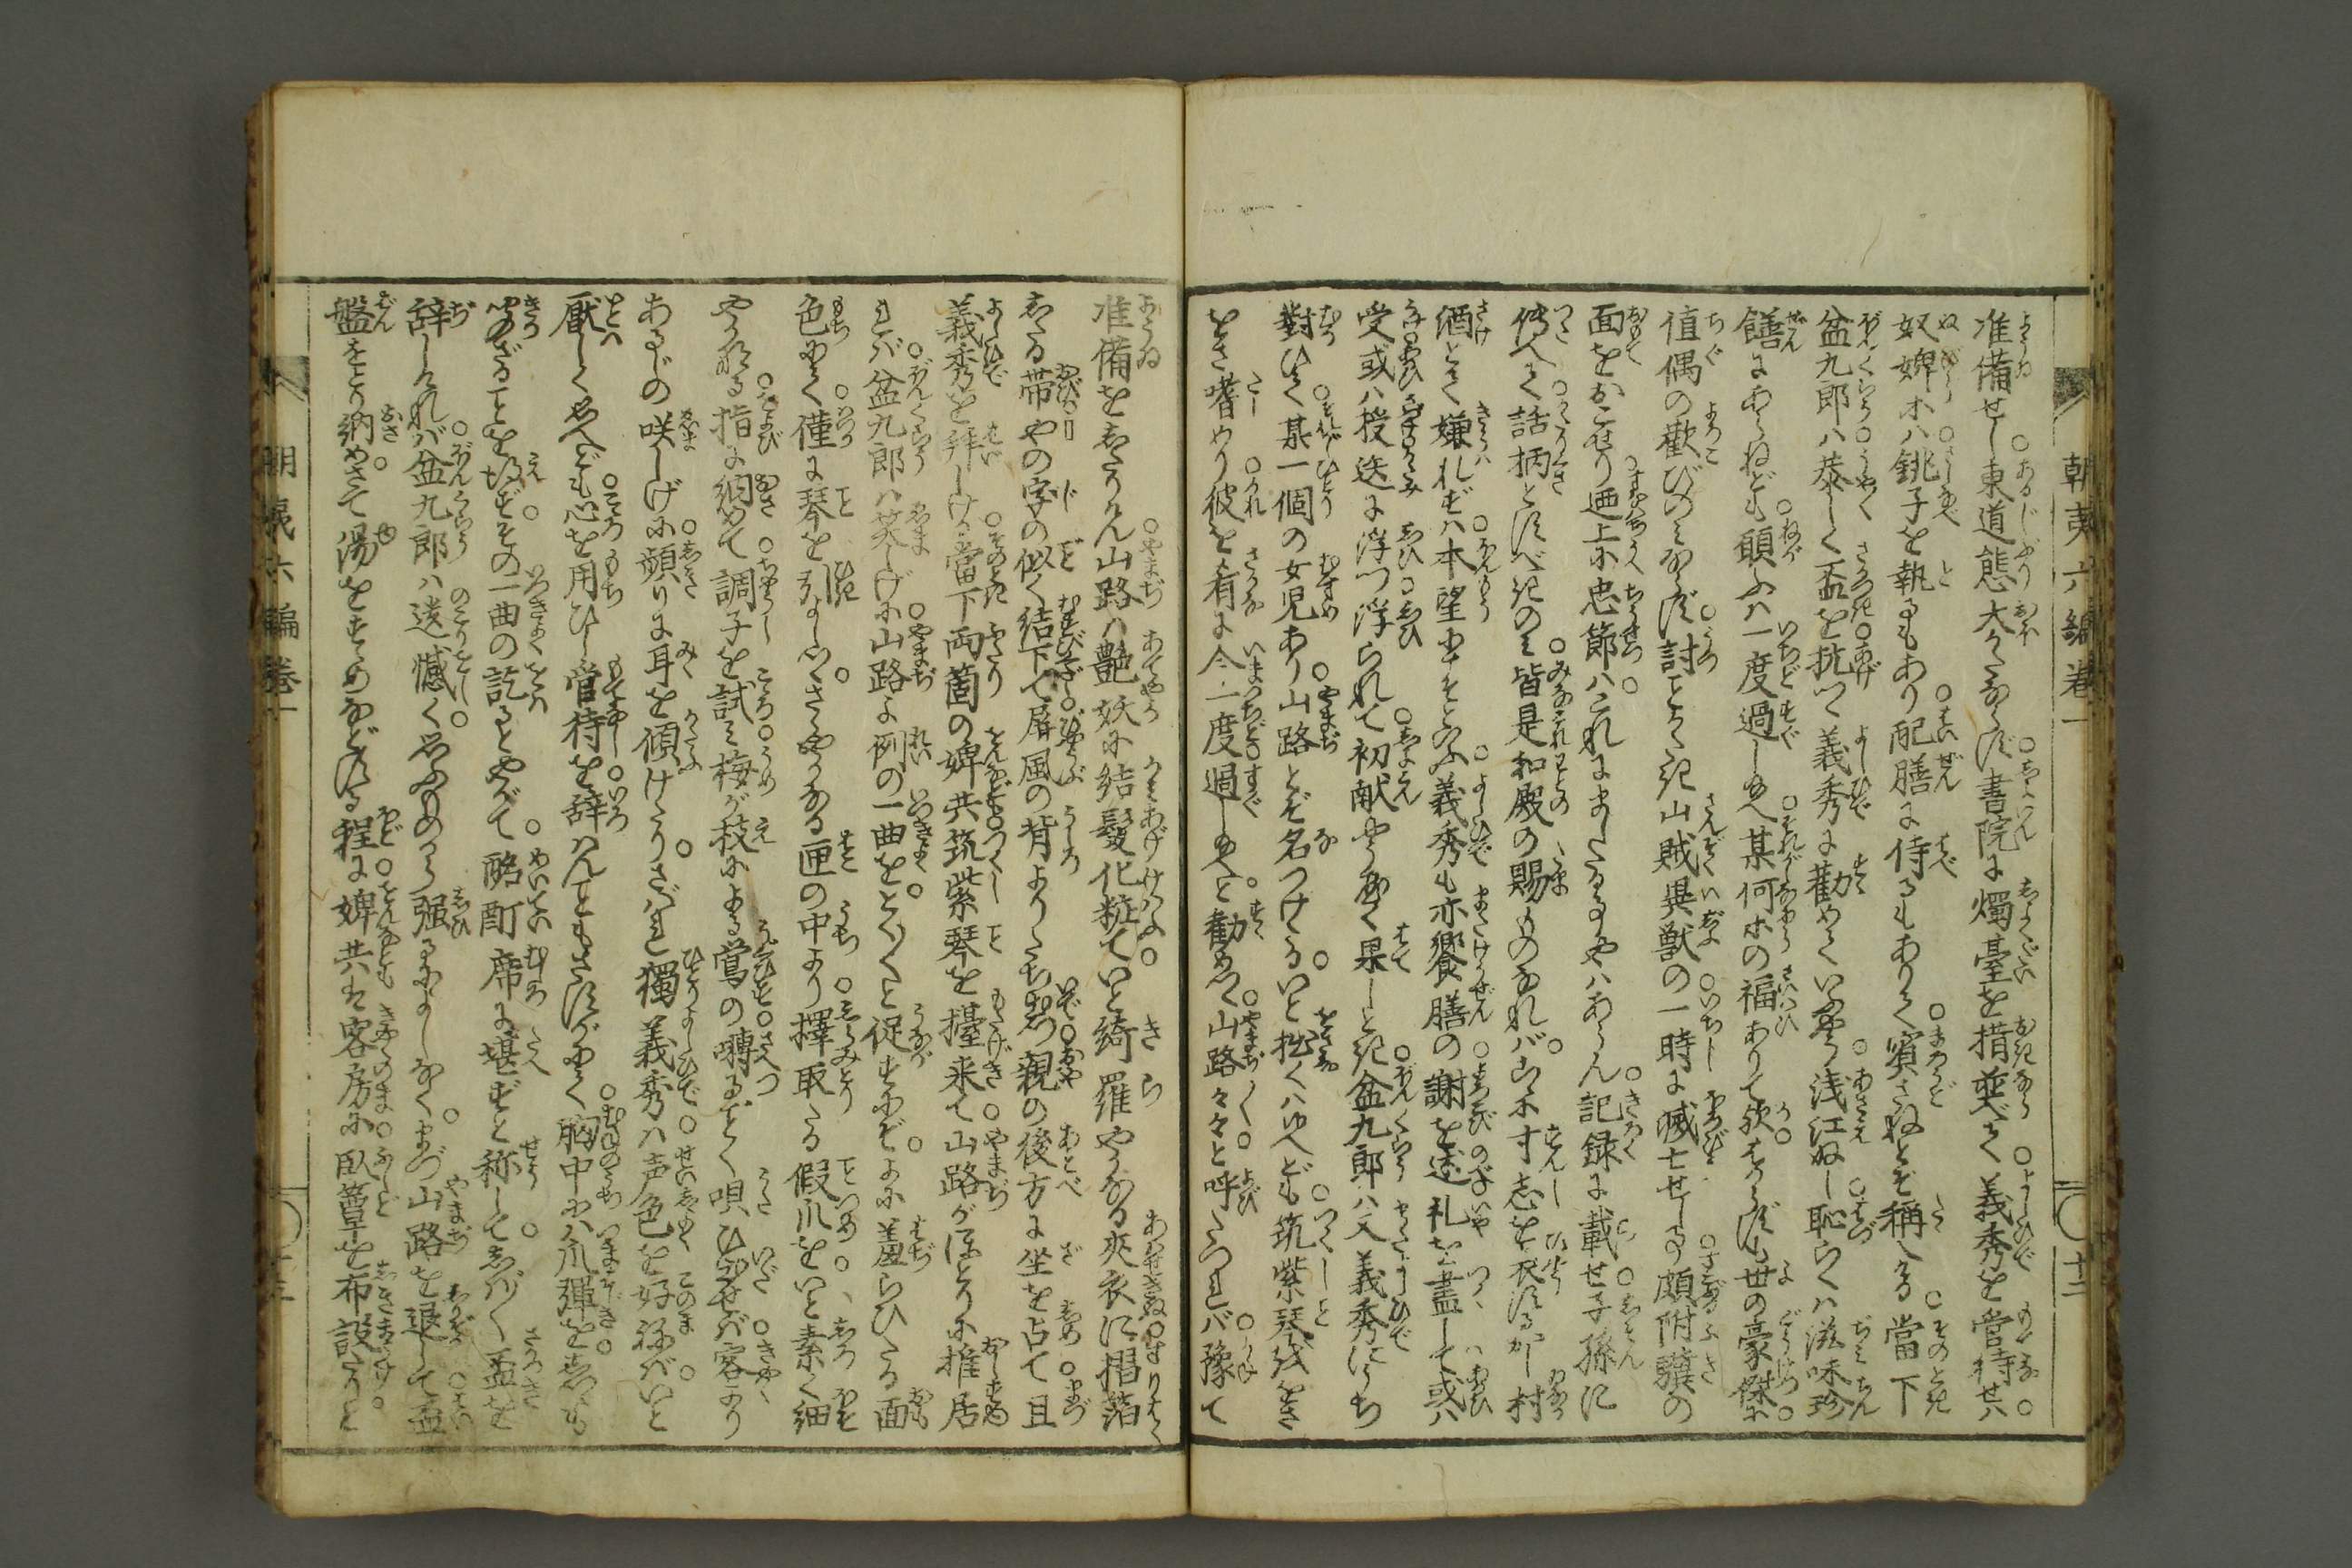 朝夷六編巻一
十二
准備せし東道態大かたならず書院に燭臺を措並べて義秀を管待せバ
奴婢ホハ銚子を執るもあり配膳に侍るもありて賓さねとぞ稱へける當下
盆九郎ハ恭しく盃を抗つゝ義秀に勸めていふやう浅江ぬし恥らくハ滋味珍
饍にあらねども願ふハ一度過し給へ某何ホの福ありて歟はからずも世の豪傑に
値偶の歡びのミならず討とりかたき山賊異獣の一時に滅亡せし事頗附驥の
面をおこせり廼上に忠節ハこれにましたる事やハあらん記録に載せ子孫に
傳へて話柄とすべきのミ皆是和殿の賜ものなれバいかで寸志を表するかし村
酒とて嫌れずハ本望ならんといふ義秀も亦饗膳の謝を述礼を盡して或ハ
受或ハ授迭に浮つ浮られて初献やうやく果しとき盆九郎ハ又義秀にうち
對ひて某一個の女児あり山路とぞ名つけたるいと拙くハ候へども筑紫琴残をさ
をさ嗜めり彼を肴に今一度過し給へと勸めつゝ山路々々と呼たつれバ豫て
准備をしたりけん山路ハ艶妖に結髪化粧ていと綺羅やかなる夾衣に摺箔
したる帯やの字の似く結下て屏風の背よりたち出つ親の後方に坐を占て且
義秀を拝しける當下両箇の婢共筑紫琴を擡来て山路がほとりに推居
れバ盆九郎ハ笑しげに山路よ例の一曲をとく〱と促すにぞよに羞らひたる面
色にて僅に琴を引よしつさゝやかなる匣の中より擇取たる假爪をいと素く細
やかなる指に納めて調子を試ミ梅が枝による鴬の囀る如く唄ひ出せバ客より
あるじの咲しげに頻りに耳を傾けたりされバ獨義秀ハ声色を好ねバいと
厭しく思へども心を用ひし管待を辞ハんこともさすがにて胸中にハ爪弾をしつゝも
聞ざることを得ずその一曲の訖るとやがて酩酊席に堪ずと称してしバ〱盃を
辞しけれバ盆九郎ハ遺憾く思ふめから强るによしなくまづ山路を退して盃
盤をとり納めさて湯をすゝめなどする程に婢共は客房に臥簟を布設たりと
朝夷六編巻一
十三